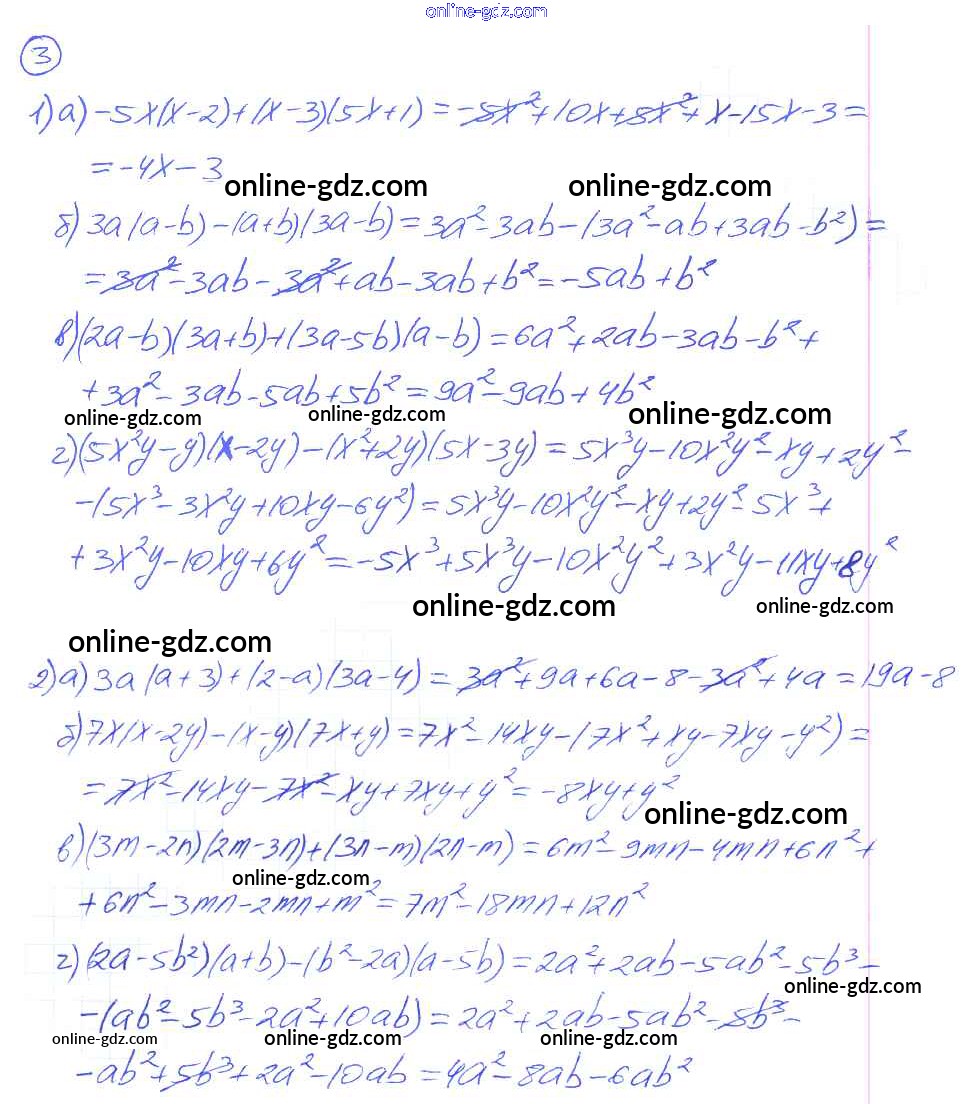 online-gdz.com
3
1) а) -5x(x-2)+(x-3)(5x+1) = -5x²+10x+5x²+x-15x-3 =
= -4x-3
online-gdz.com online-gdz.com
б) 3a(a-b)-(a+b)(3a-b) = 3a²-3ab-(3a²-ab+3ab-b²) =
= 3a²-3ab-3a²+ab-3ab+b² = -5ab+b²
в) (2a-b)(3a+b)+(3a-5b)(a-b) = 6a²+2ab-3ab-b²+
+3a²-3ab-5ab+5b² = 9a²-9ab+4b²
online-gdz.com online-gdz.com online-gdz.com
г) (5x²y-y)(x-2y)-(x²+2y)(5x-3y) = 5x³y-10x²y²-xy+2y²-
-(5x³-3x²y+10xy-6y²) = 5x³y-10x²y²-xy+2y²-5x³+
+3x²y-10xy+6y² = -5x³+5x³y-10x²y²+3x²y-11xy+8y²
online-gdz.com online-gdz.com
online-gdz.com
2) а) 3a(a+3)+(2-a)(3a-4) = 3a²+9a+6a-8-3a²+4a = 19a-8
б) 7x(x-2y)-(x-y)(7x+y) = 7x²-14xy-(7x²+xy-7xy-y²) =
= 7x²-14xy-7x²-xy+7xy+y² = -8xy+y²
online-gdz.com
в) (3m-2n)(2m-3n)+(3n-m)(2n-m) = 6m²-9mn-4mn+6n²+
online-gdz.com
+6n²-3mn-2mn+m² = 7m²-18mn+12n²
г) (2a-5b²)(a+b)-(b²-2a)(a-5b) = 2a²+2ab-5ab²-5b³-
online-gdz.com
-(ab²-5b³-2a²+10ab) = 2a²+2ab-5ab²-5b³-
online-gdz.com online-gdz.com online-gdz.com
-ab²+5b³+2a²-10ab = 4a²-8ab-6ab²